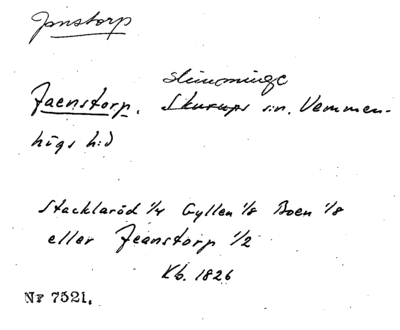 Janstorp
Slimminge
Jaenstorp. Skurups sn. Vemmen-
högs hd
Stacklaröd 1/4 Gyllen 1/8 Boen 1/8
eller Jeanstorp 1/2
Kb. 1826
Nr 7521.